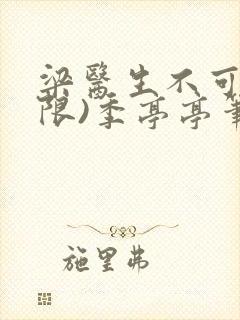 梁醫生不可
限)季亭亭
施里弗